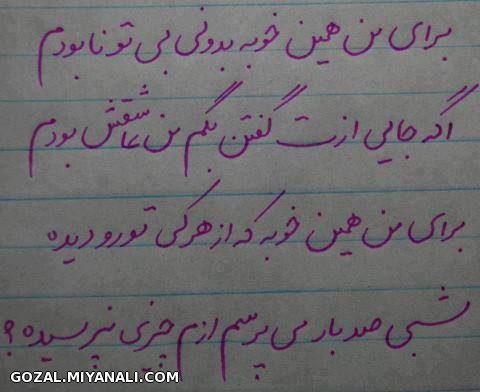 برای من همین خوبه بدونی بی تو نابودم
اگه جایی ازت گفتن بگم من عاشقش بودم
برای من همین خوبه که از هرکی تو رو دیده
شبی صد بار می پرسم ازم چیزی نپرسیده؟
GOZAL.MIYANALI.COM